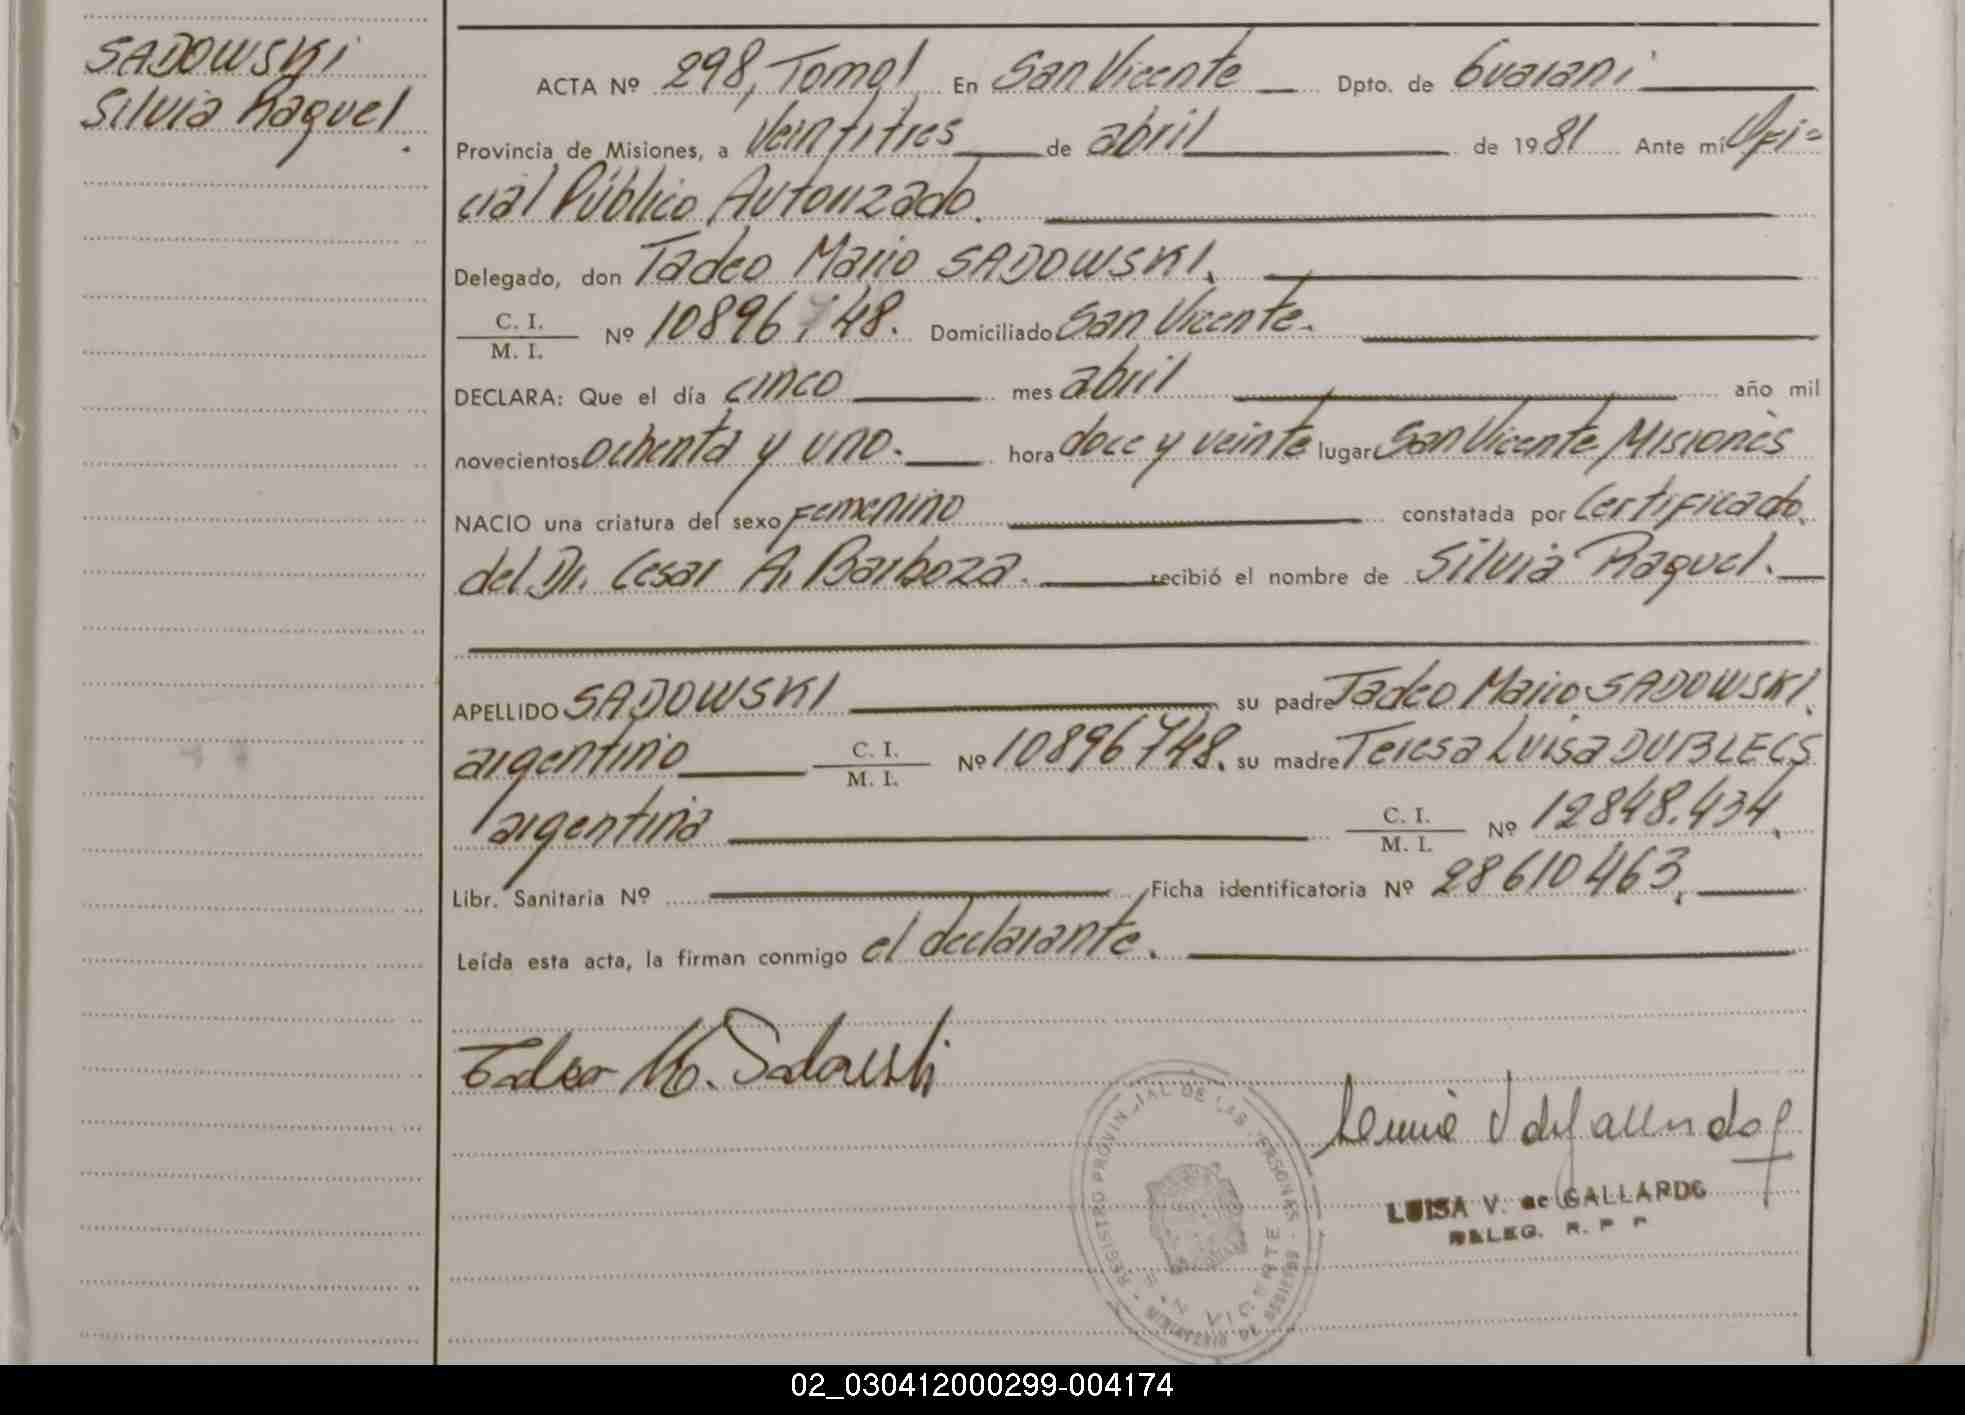 SADOWSKI
Silvia Raquel.
ACTA Nº 298, Tomo I En San Vicente Dpto. de Guarani
Provincia de Misiones, a Veintitres de abril de 1981 Ante mí Ofi=
cial Público Autorizado.
Delegado, don Tadeo Mario SADOWSKI.
C. I.
M. I. Nº 10896748. Domiciliado San Vicente.
DECLARA: Que el día cinco mes abril año mil
novecientos ochenta y uno. hora doce y veinte lugar San Vicente, Misiones
NACIO una criatura del sexo Femenino constatada por Certificado
del Dr. Cesar A. Barboza. recibió el nombre de Silvia Raquel.
APELLIDO SADOWSKI su padre Tadeo Mario SADOWSKI.
argentino C. I. M. I. Nº 10896748. su madre Teresa Luisa DUBLECS
argentina C. I. M. I. Nº 12848.434.
Libr. Sanitaria Nº Ficha identificatoria Nº 28610463.
Leída esta acta, la firman conmigo el declarante.
Tadeo M. Sadowski
REGISTRO PROVINCIAL DE LAS PERSONAS
VICENTE
LUISA V. de GALLARDO
DELEG. R. P. P.
02_030412000299-004174